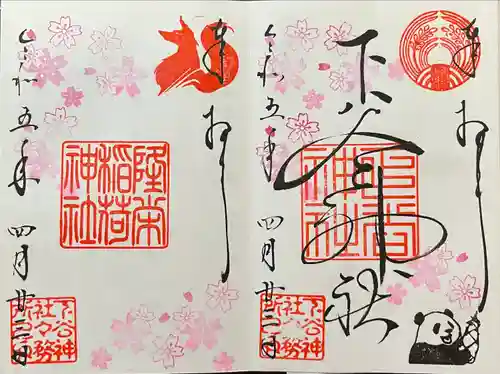 奉拝
下谷神社
下谷神社
令和五年四月廿二日
下谷神
社々務
所印
奉拝
隆栄
稲荷
神社
令和五年四月廿二日
下谷神
社々務
所印